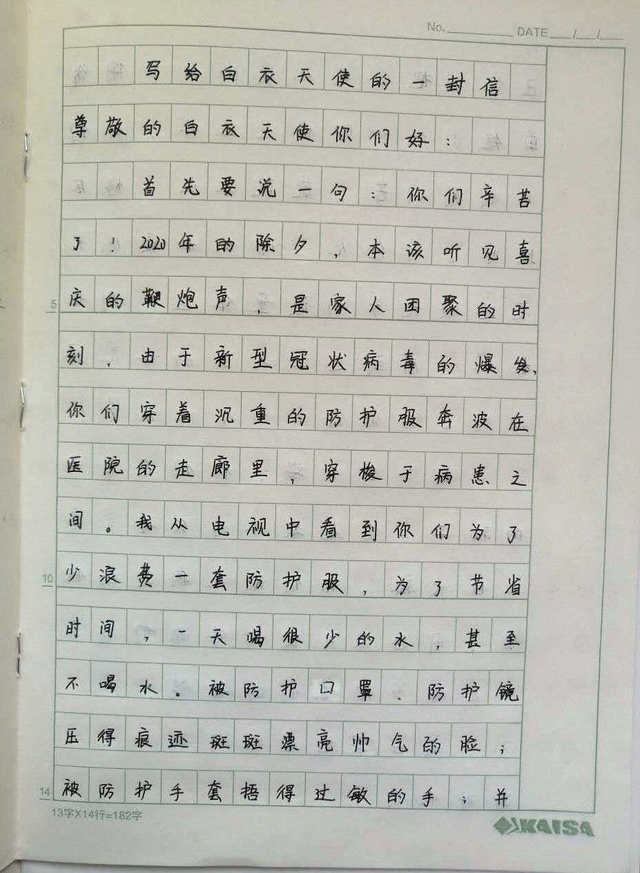 No. DATE / /
写给白衣天使的一封信
尊敬的白衣天使你们好：
首先要说一句：你们辛苦
了！2020年的除夕，本该听见喜
5 庆的鞭炮声，是家人团聚的时
刻，由于新型冠状病毒的爆发，
你们穿着沉重的防护服奔波在
医院的走廊里，穿梭于病患之
间。我从电视中看到你们为了
10 少浪费一套防护服，为了节省
时间，一天喝很少的水，甚至
不喝水。被防护口罩、防护镜
压得痕迹斑斑漂亮帅气的脸；
14 被防护手套捂得过敏的手；并
13字X14行=182字
KAISA